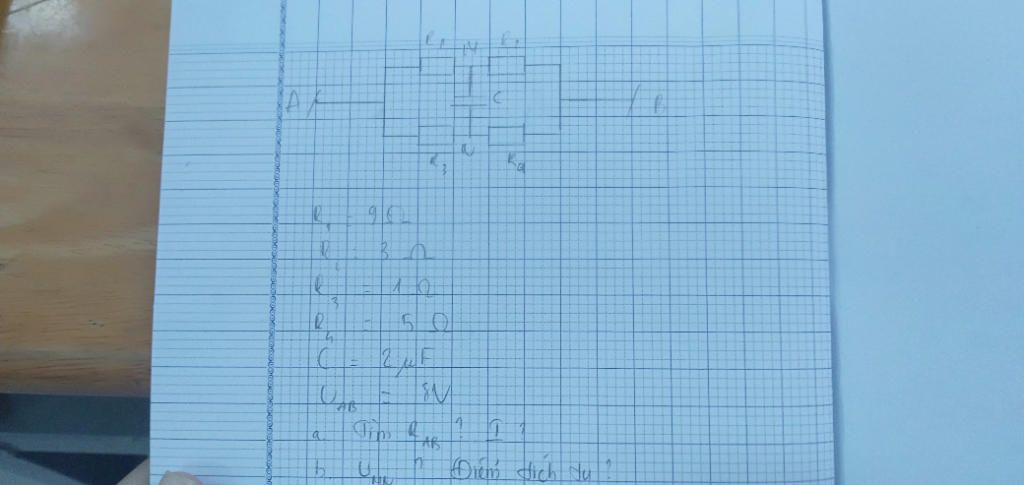 R₁ M R₂
A C B
R₃ N R₄
R₁ = 9 Ω
R₂ = 3 Ω
R₃ = 1 Ω
R₄ = 5 Ω
C = 2 μF
U_AB = 8V
a. Tìm R_AB ? I ?
b. U_MN ? Điểm tích tụ ?